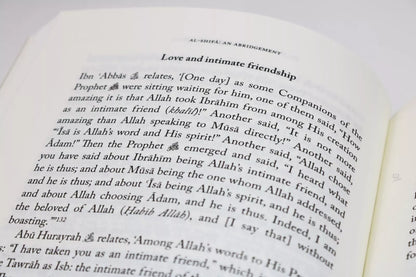 AL-SHIFĀ: AN ABRIDGEMENT
Love and intimate friendship
Ibn ʿAbbās ﷺ relates, ‘[One day] as some Companions of the
Prophet ﷺ were sitting waiting for him, one of them said, “How
amazing it is that Allah took Ibrāhīm from among His creation
as an intimate friend (khalīl)!” Another said, “It is not more
amazing than Allah speaking to Mūsā directly!” Another said,
“ʿĪsā is Allah’s word and His spirit!” Another said, “Allah chose
Ādam!” Then the Prophet ﷺ emerged and said, “I heard what
you have said about Ibrāhīm being Allah’s intimate friend,
and he is thus; and about Mūsā being the one whom Allah addressed,
and he is thus; and about ʿĪsā being Allah’s spirit, and he is thus;
and about Allah choosing Ādam, and he is thus. Indeed, I am
the beloved of Allah (Ḥabīb Allāh), and [I say that] without
boasting.”’¹³²
Abū Hurayrah relates, ‘Among Allah’s words to His
is: “I have taken you as an intimate friend,” which
Tawrah as Isb: the intimate friend of